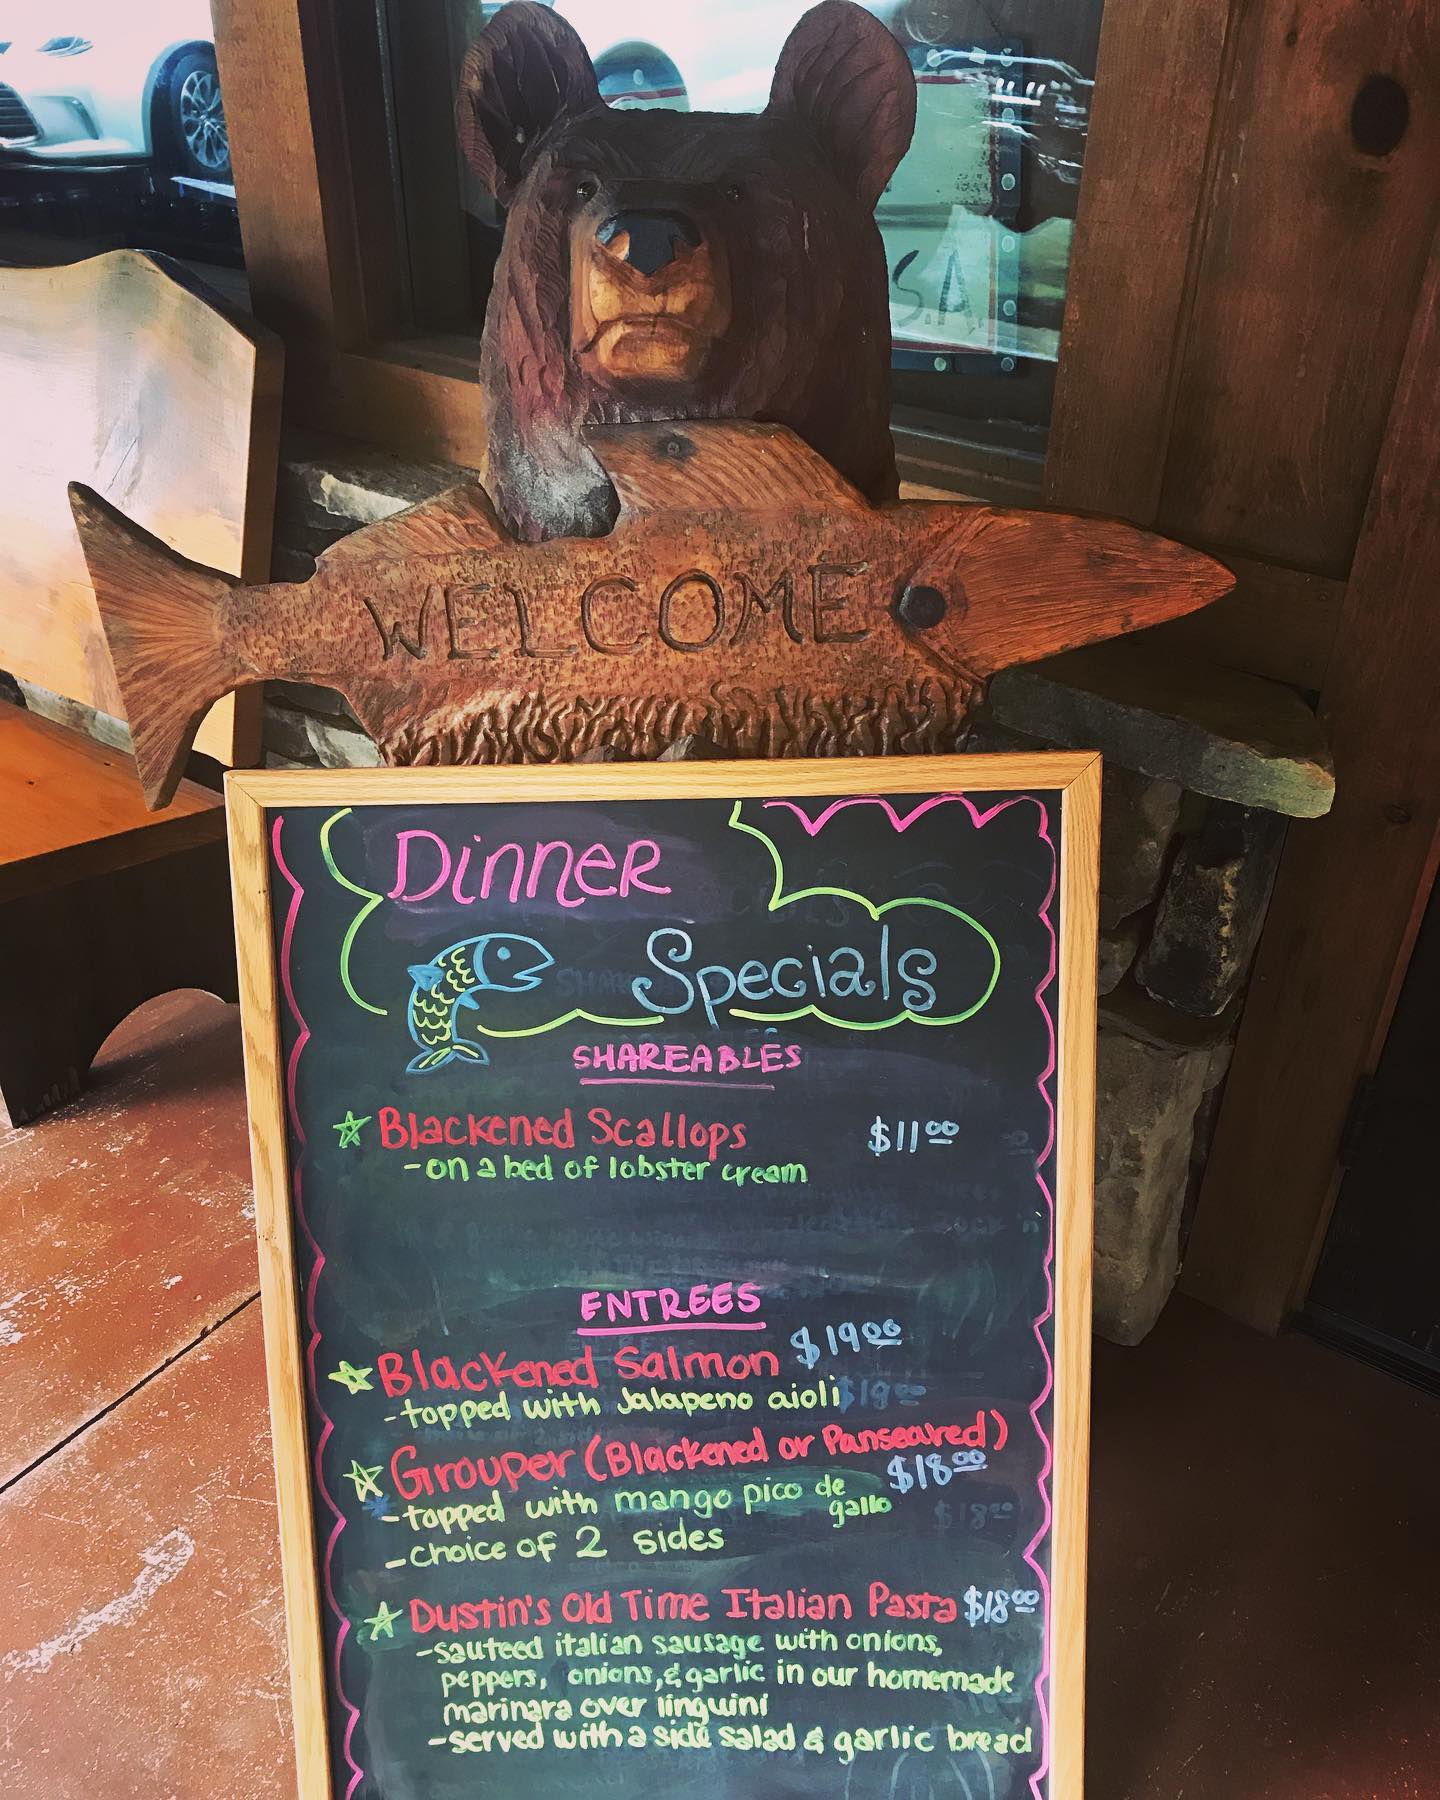 S.A.
WELCOME
Dinner
Specials
SHAREABLES
Blackened Scallops $11.00
-on a bed of lobster cream
ENTREES
Blackened Salmon $19.00
-topped with Jalapeno aioli
Grouper (Blackened or Panseared)
$18.00
-topped with mango pico de
gallo
-choice of 2 sides
Dustin's Old Time Italian Pasta $18.00
-sauteed italian sausage with onions,
peppers, onions, & garlic in our homemade
marinara over linguini
-served with a side salad & garlic bread